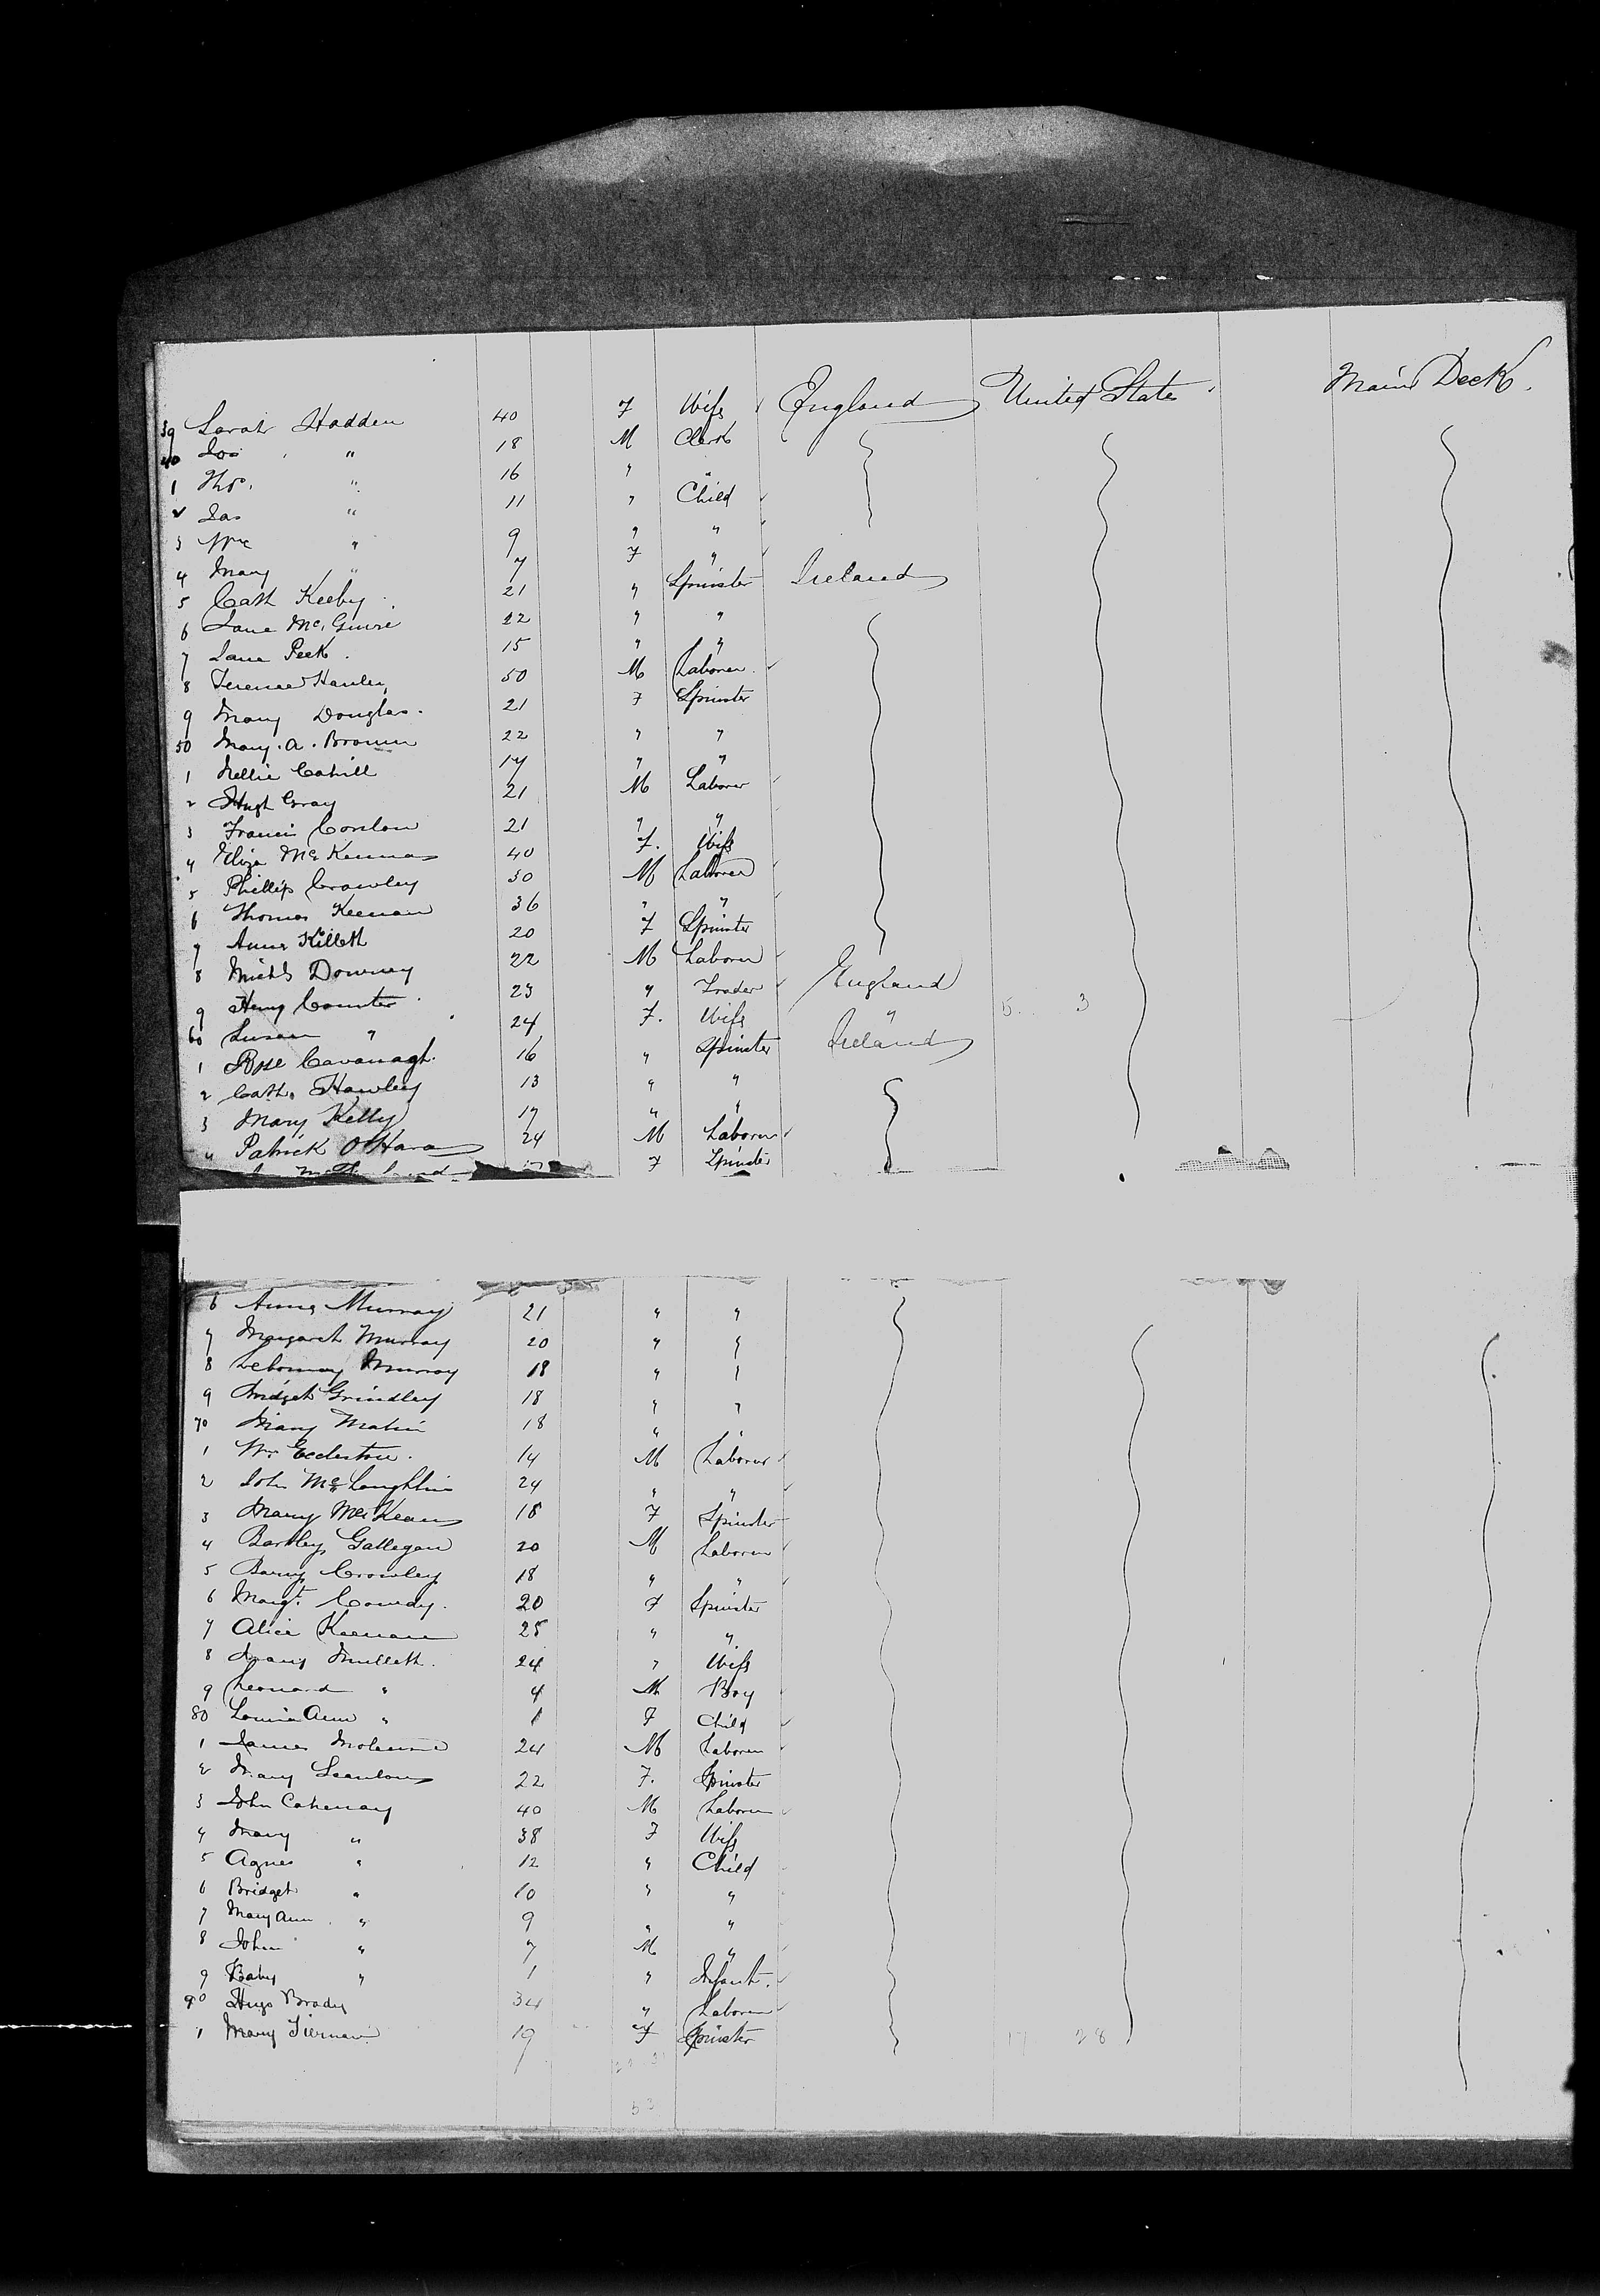 39 Sarah Hadden 40 F Wife England United States Main Deck.
40 Jos " 18 M Clerk
1 Thos. " 16 " "
2 Jas " 11 " Child
3 Wm " 9 " "
4 Mary " 7 F "
5 Cath 21 " Spinster Ireland
6 Jane McGuire 22 " "
7 Jane Peek 15 " "
8 Terence 50 M Laborer
9 Mary Douglas. 21 F Spinster
50 Mary. A. Brown 22 " "
1 Nellie Cahill 17 " "
2 Hugh Gray 21 M Laborer
3 Francis Conlon 21 " "
4 Eliza McKenna 40 F. Wife
5 Phillip Crowley 50 M Laborer
6 Thomas Keenan 36 " "
7 Anne 20 F Spinster
8 Michl Downey 22 M Laborer
9 Henry Counter 23 " Trader England
60 Susan " 24 F. Wife " 5 3
1 Rose Cavanagh. 16 " Spinster Ireland
2 Cath. Hawley 13 " "
3 Mary Kelly 17 " "
4 Patrick O'Hara 24 M Laborer
F Spinster
6 Anne Murray 21 " "
7 Margaret Murray 20 " "
8 Murray 18 " "
9 Bridget Grindley 18 " "
70 Mary 18 " "
1 Wm Eccleston. 14 M Laborer
2 John McLoughlin 24 " "
3 Mary McKean 18 F Spinster
4 Bartley Gallegan 20 M Laborer
5 Barny Crowley 18 " "
6 Margt. 20 F Spinster
7 Alice Keenan 25 " "
8 Mary 24 " Wife
9 Leonard " 4 M Boy
80 Louisa Ann " 1 F Child
1 James 24 M Laborer
2 Mary Scanlon 22 F. Spinster
3 John 40 M Laborer
4 Mary " 38 F Wife
5 Agnes " 12 " Child
6 Bridget " 10 " "
7 Mary Ann " 9 " "
8 John " 7 M "
9 Baby " 1 " Infant.
90 Hugo Brady 34 " Laborer
1 Mary Tiernan 19 F Spinster 17 28
53